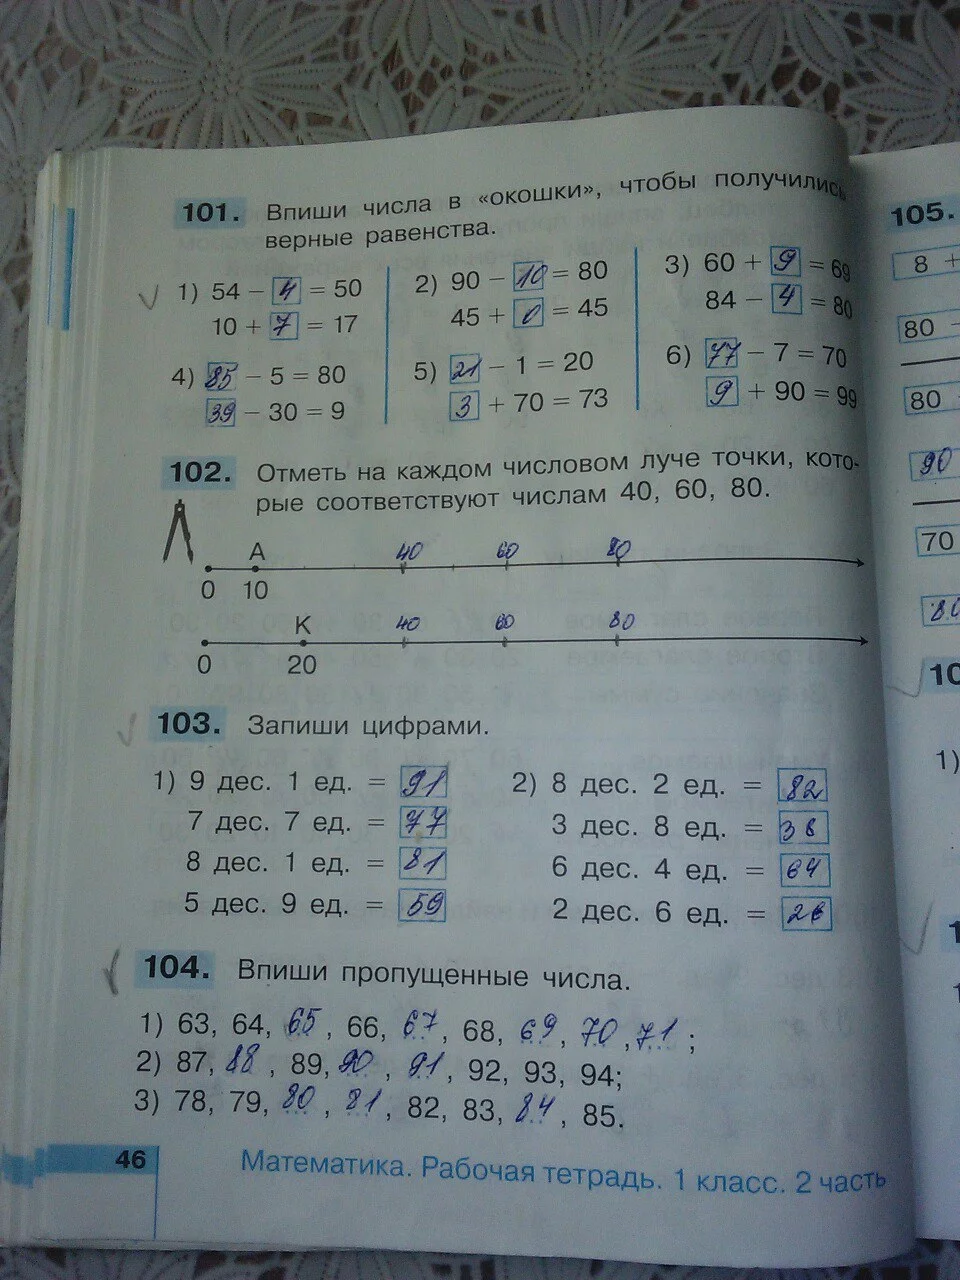 101. Впиши числа в «окошки», чтобы получились
верные равенства.
1) 54 − 4 = 50
10 + 7 = 17
2) 90 − 10 = 80
45 + 0 = 45
3) 60 + 9 = 69
84 − 4 = 80
4) 85 − 5 = 80
39 − 30 = 9
5) 21 − 1 = 20
3 + 70 = 73
6) 77 − 7 = 70
9 + 90 = 99
102. Отметь на каждом числовом луче точки, кото-
рые соответствуют числам 40, 60, 80.
A 40 60 80
0 10
K 40 60 80
0 20
103. Запиши цифрами.
1) 9 дес. 1 ед. = 91
7 дес. 7 ед. = 77
8 дес. 1 ед. = 81
5 дес. 9 ед. = 59
2) 8 дес. 2 ед. = 82
3 дес. 8 ед. = 38
6 дес. 4 ед. = 64
2 дес. 6 ед. = 26
104. Впиши пропущенные числа.
1) 63, 64, 65, 66, 67, 68, 69, 70, 71;
2) 87, 88, 89, 90, 91, 92, 93, 94;
3) 78, 79, 80, 81, 82, 83, 84, 85.
46 Математика. Рабочая тетрадь. 1 класс. 2 часть
105.
8 +
80 −
80
90
70
80
10
1)